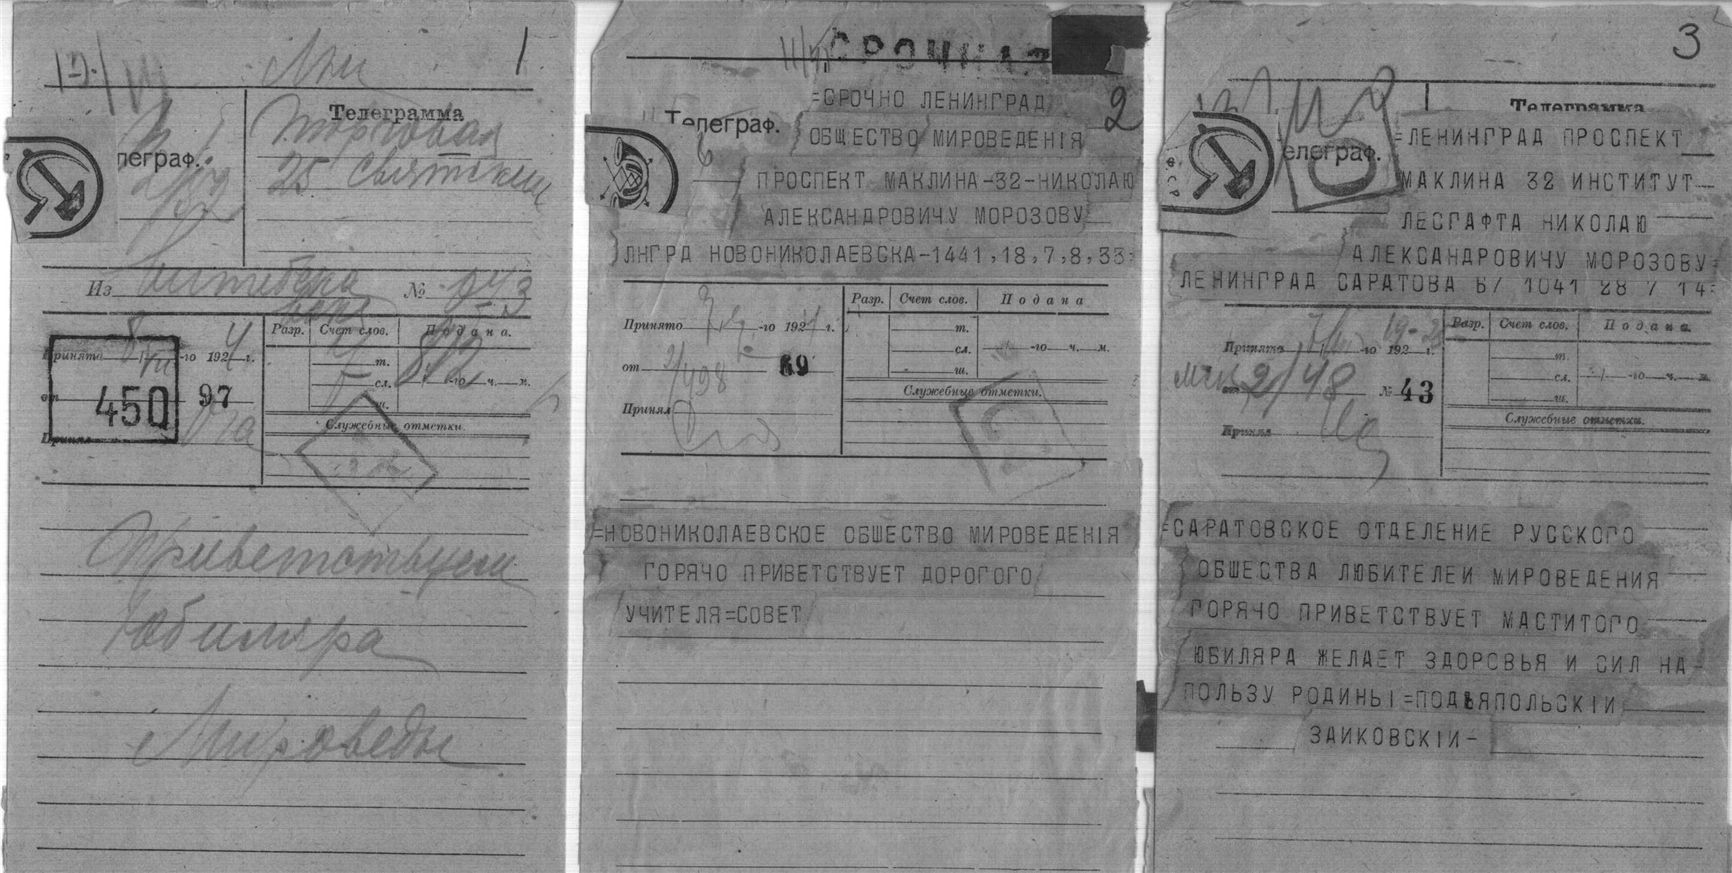 1
Телеграмма
Торговая
25 Святским
леграф.
Из Витебска № 943
Разр. Счет слов. Подана.
Принято 8/VII -го 1924 г.
т.
сл. -го ч. м.
ш.
от 450 97
Принял
Служебные отметки.
Приветствуем
Юбиляра
Мироведы
СРОЧНАЯ
2
Телеграф.
=СРОЧНО ЛЕНИНГРАД
ОБЩЕСТВО МИРОВЕДЕНІЯ
ПРОСПЕКТ МАКЛИНА-32-НИКОЛАЮ
АЛЕКСАНДРОВИЧУ МОРОЗОВУ
ЛНГРД НОВОНИКОЛАЕВСКА-1441,18,7,8,33=
Разр. Счет слов. Подана
Принято -го 192 г.
т.
сл. -го ч. м.
ш.
от 2/498 69
Служебные отметки.
Принял
=НОВОНИКОЛАЕВСКОЕ ОБШЕСТВО МИРОВЕДЕНІЯ
ГОРЯЧО ПРИВЕТСТВУЕТ ДОРОГОГО
УЧИТЕЛЯ=СОВЕТ
3
Телеграмма
елеграф.
=ЛЕНИНГРАД ПРОСПЕКТ
МАКЛИНА 32 ИНСТИТУТ
ЛЕСГАФТА НИКОЛАЮ
АЛЕКСАНДРОВИЧУ МОРОЗОВУ=
ЛЕНИНГРАД САРАТОВА 67 1041 28 7 14=
Разр. Счет слов. Подана.
Принято -го 192 г.
т.
сл. -го ч. м.
ш.
от 2/48 № 43
Служебные отметки.
Принял
=САРАТОВСКОЕ ОТДЕЛЕНИЕ РУССКОГО
ОБШЕСТВА ЛЮБИТЕЛЕИ МИРОВЕДЕНИЯ
ГОРЯЧО ПРИВЕТСТВУЕТ МАСТИТОГО
ЮБИЛЯРА ЖЕЛАЕТ ЗДОРСВЬЯ И СИЛ НА-
ПОЛЬЗУ РОДИНЫ=ПОДЪЯПОЛЬСКІИ
ЗАИКОВСКІИ-